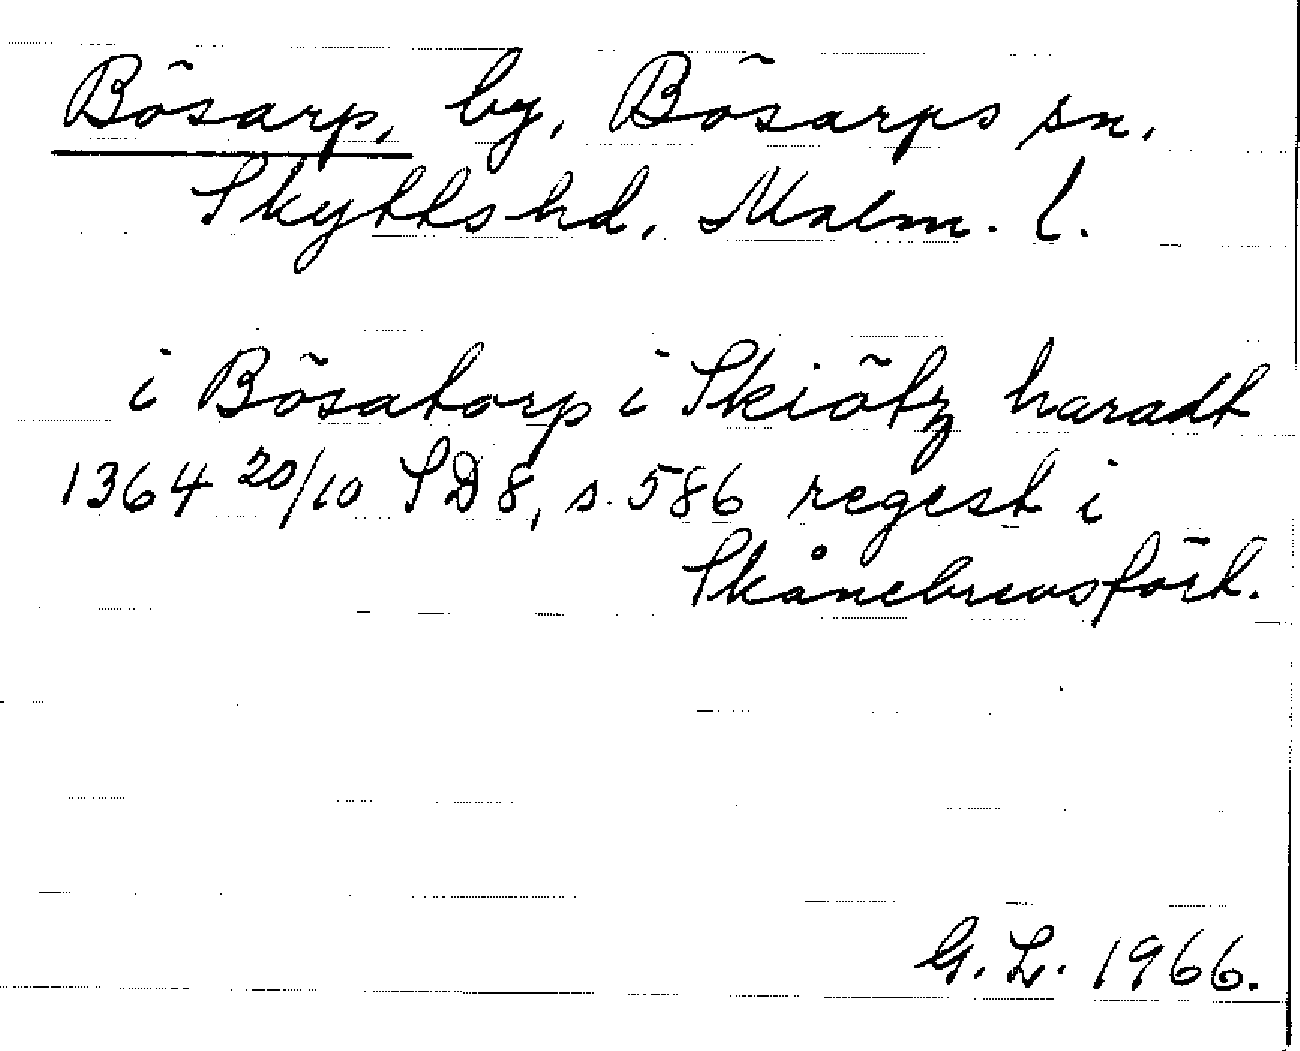 Bösarp, by, Bösarps sn,
Skytts hd, Malm. l.
i Bösatorp i Skiötz haradt
1364 20/10 SD8, s. 586 regest i
Skånebrevsfört.
G. L. 1966.